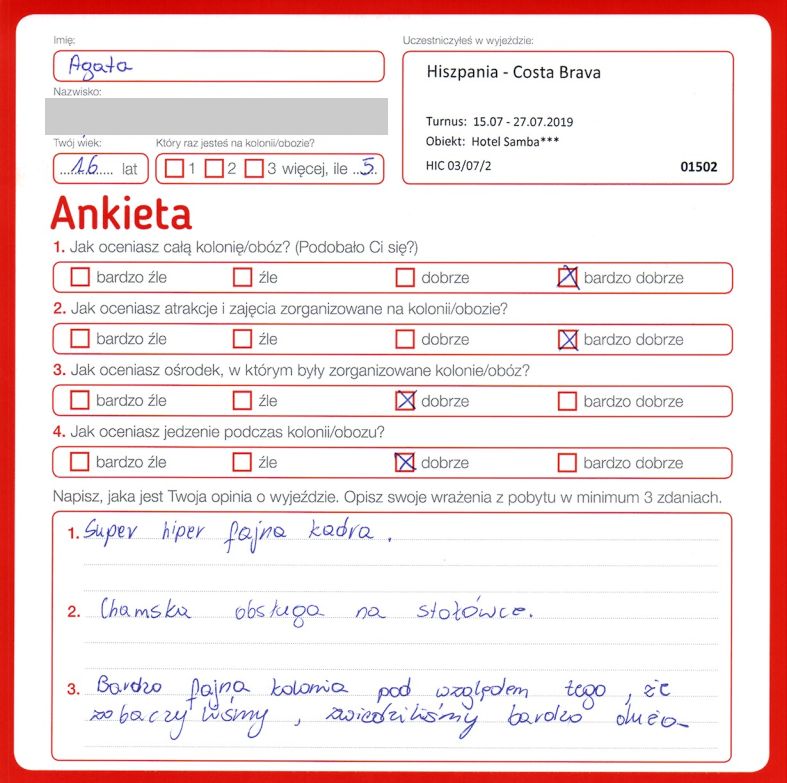 Imię:
Uczestniczyłeś w wyjeździe:
Agata
Hiszpania - Costa Brava
Nazwisko:
Turnus: 15.07 - 27.07.2019
Obiekt: Hotel Samba***
HIC 03/07/2 01502
Twój wiek: Który raz jesteś na kolonii/obozie?
16 lat 1 2 3 więcej, ile 5
Ankieta
1. Jak oceniasz całą kolonię/obóz? (Podobało Ci się?)
bardzo źle źle dobrze bardzo dobrze
2. Jak oceniasz atrakcje i zajęcia zorganizowane na kolonii/obozie?
bardzo źle źle dobrze bardzo dobrze
3. Jak oceniasz ośrodek, w którym były zorganizowane kolonie/obóz?
bardzo źle źle dobrze bardzo dobrze
4. Jak oceniasz jedzenie podczas kolonii/obozu?
bardzo źle źle dobrze bardzo dobrze
Napisz, jaka jest Twoja opinia o wyjeździe. Opisz swoje wrażenia z pobytu w minimum 3 zdaniach.
1. Super hiper fajna kadra.
2. Chamska obsługa na stołówce.
3. Bardzo fajna kolonia pod względem tego, że
zobaczyliśmy, zwiedziliśmy bardzo dużo